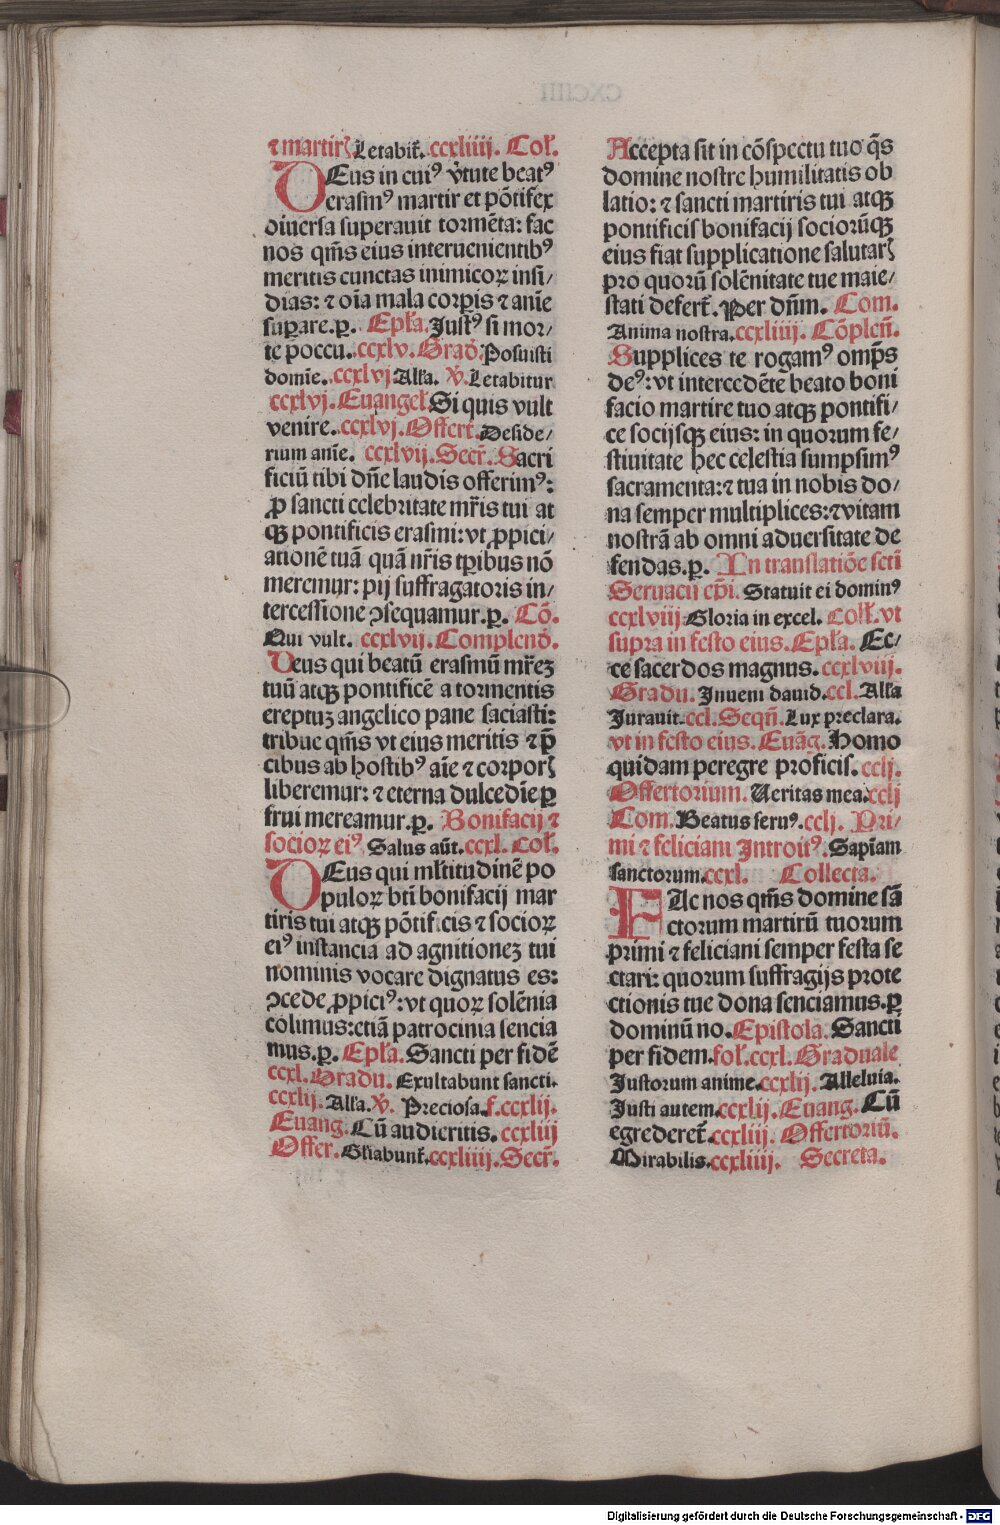 ⁊ martirꝭ Letabit᷑. ccxliiij. Col̃.
DEus in cuiꝰ v̓tute beatꝰ
erasmꝰ martir et põtifex
diuersa superauit tormẽta: fac
nos qm̃s eius interuenientibꝰ
meritis cunctas inimicoꝝ insi/
dias: ⁊ oĩa mala corꝑis ⁊ anĩe
suꝑare.ꝑ. Epl̃a. Justꝰ si mor/
te poccu. ccxlv. Grad̃. Posuisti
domĩe. ccxlvj All̃a. v̓. Letabitur
ccxlvj. Euangel̃ Si quis vult
venire. ccxlvj. Offert̃. Deside/
rium anĩe. ccxlvij. Secr̃. Sacri
ficiũ tibi dñe laudis offerimꝰ:
ꝓ sancti celebritate mr̃is tui at
qꝫ pontificis erasmi: vt ꝓpici/
ationẽ tuã quã nr̃is tꝑibus nõ
meremur: pij suffragatoris in/
tercessione ꝯsequamur.ꝑ. Cõ.
Qui vult. ccxlvij. Complenð.
Deus qui beatũ erasmũ mr̃eꝫ
tuũ atqꝫ pontificẽ a tormentis
ereptuꝫ angelico pane saciasti:
tribue qm̃s vt eius meritis ⁊ p̃
cibus ab hostibꝰ aĩe ⁊ corporꝭ
liberemur: ⁊ eterna dulcedĩe ꝑ
frui mereamur.ꝑ. Bonifacij ⁊
socioꝝ eiꝰ. Salus aũt. ccxl. Col̃.
DEus qui ml̃titudinẽ po
puloꝝ bt̃i bonifacij mar
tiris tui atqꝫ põtificis ⁊ socioꝝ
eiꝰ instancia ad agnitioneꝫ tui
nominis vocare dignatus es:
ꝯcede ꝓpiciꝰ: vt quoꝝ solẽnia
colimus: etiã patrocinia sencia
mus.ꝑ. Epl̃a. Sancti per fidẽ
ccxl. Gradu. Exultabunt sancti.
ccxlij. All̃a. v̓. Preciosa. f. ccxlij.
Euang. Cũ audieritis. ccxliij
Offer. Gl̃iabunt᷑. ccxliiij. Secr̃.
Accepta sit in cõspectu tuo q̃s
domine nostre humilitatis ob
latio: ⁊ sancti martiris tui atqꝫ
pontificis bonifacij sociorũqꝫ
eius fiat supplicatione salutarꝭ
pro quorũ solẽnitate tue maie/
stati defert᷑. Per dñm. Com.
Anima nostra. ccxliiij. Cõplen̄.
Supplices te rogamꝰ omp̃s
deꝰ: vt intercedẽte beato boni
facio martire tuo atqꝫ pontifi/
ce socijsqꝫ eius: in quorum fe/
stiuitate hec celestia sumpsimꝰ
sacramenta: ⁊ tua in nobis do/
na semper multiplices: ⁊ vitam
nostrã ab omni aduersitate de
fendas.ꝑ. In translatiõe sct̃i
Seruacij ep̃i. Statuit ei dominꝰ
ccxlviij Gloria in excel. Coll̃. vt
supra in festo eius. Epl̃a. Ec/
ce sacerdos magnus. ccxlviij.
Gradu. Jnueni dauid. ccl. All̃a
Jurauit. ccl. Seqñ. Lux preclara.
vt in festo eius. Euãg. Homo
quidam peregre proficis. cclj.
Offertorium. Ueritas mea. cclj
Com. Beatus seruꝰ. cclj. Pri/
mi ⁊ feliciani Introitꝰ. Sapĩam
sanctorum. ccxl. Collecta.
FAc nos qm̃s domine sã
ctorum martirũ tuorum
primi ⁊ feliciani semper festa se
ctari: quorum suffragijs prote
ctionis tue dona senciamus. ꝑ
dominũ no. Epistola. Sancti
per fidem. fol̃. ccxl. Graduale
Justorum anime. ccxlij. Alleluia.
Justi autem. ccxlij. Euang. Cũ
egrederet᷑. ccxliij. Offertoriũ.
Mirabilis. ccxliiij. Secreta.
Digitalisierung gefördert durch die Deutsche Forschungsgemeinschaft - DFG